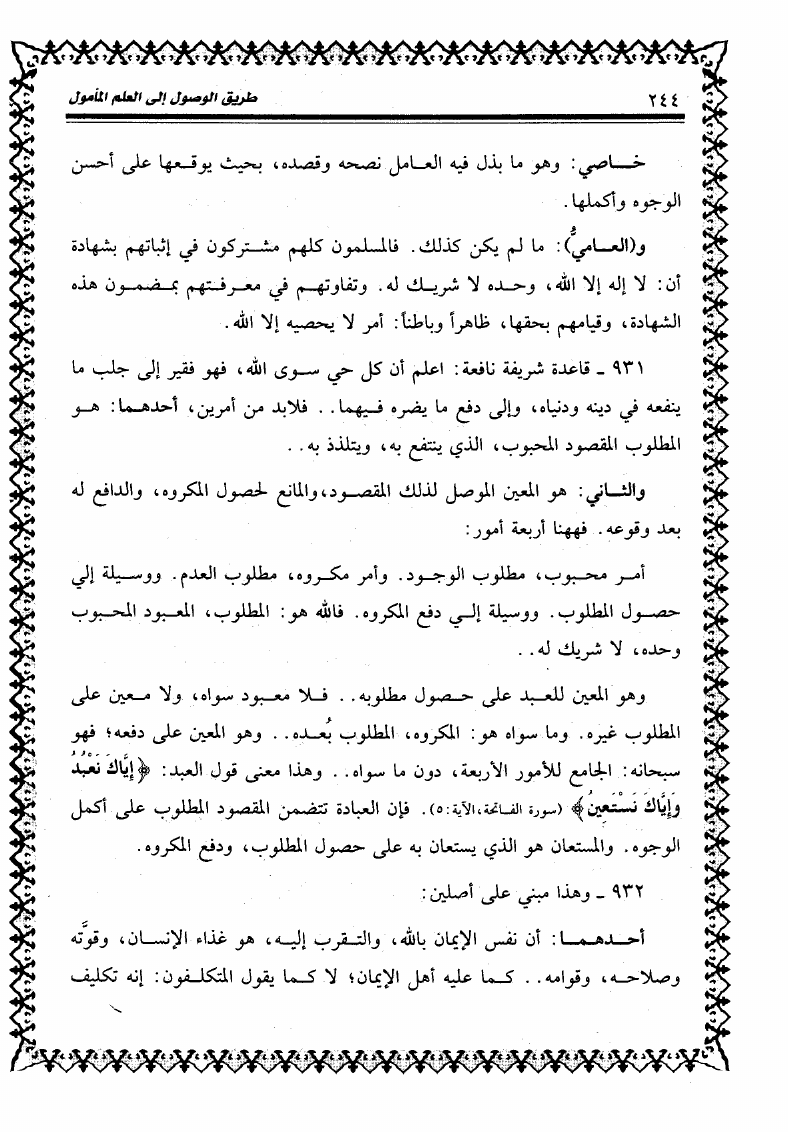 ٢٤٤ طريق الوصول إلى العلم المأمول
خاصي: وهو ما بذل فيه العامل نصحه وقصده، بحيث يوقعها على أحسن
الوجوه وأكملها.
و(العاميُّ): ما لم يكن كذلك. فالمسلمون كلهم مشتركون في إثباتهم بشهادة
أن: لا إله إلا الله، وحده لا شريك له. وتفاوتهم في معرفتهم بمضمون هذه
الشهادة، وقيامهم بحقها، ظاهراً وباطناً: أمر لا يحصيه إلا الله.
٩٣١ - قاعدة شريفة نافعة: اعلم أن كل حي سوى الله، فهو فقير إلى جلب ما
ينفعه في دينه ودنياه، وإلى دفع ما يضره فيهما.. فلابد من أمرين، أحدهما: هو
المطلوب المقصود المحبوب، الذي ينتفع به، ويتلذذ به..
والثاني: هو المعين الموصل لذلك المقصود،والمانع لحصول المكروه، والدافع له
بعد وقوعه. فههنا أربعة أمور:
أمر محبوب، مطلوب الوجود. وأمر مكروه، مطلوب العدم. ووسيلة إلي
حصول المطلوب. ووسيلة إلي دفع المكروه. فالله هو: المطلوب، المعبود المحبوب
وحده، لا شريك له..
وهو المعين للعبد على حصول مطلوبه.. فلا معبود سواه، ولا معين على
المطلوب غيره. وما سواه هو: المكروه، المطلوب بُعده.. وهو المعين على دفعه؛ فهو
سبحانه: الجامع للأمور الأربعة، دون ما سواه.. وهذا معنى قول العبد: ﴿إِيَّاكَ نَعْبُدُ
وَإِيَّاكَ نَسْتَعِينُ﴾ (سورة الفاتحة،الآية:٥). فإن العبادة تتضمن المقصود المطلوب على أكمل
الوجوه. والمستعان هو الذي يستعان به على حصول المطلوب، ودفع المكروه.
٩٣٢ - وهذا مبني على أصلين:
أحدهما: أن نفس الإيمان بالله، والتقرب إليه، هو غذاء الإنسان، وقوَّته
وصلاحه، وقوامه.. كما عليه أهل الإيمان؛ لا كما يقول المتكلفون: إنه تكليف